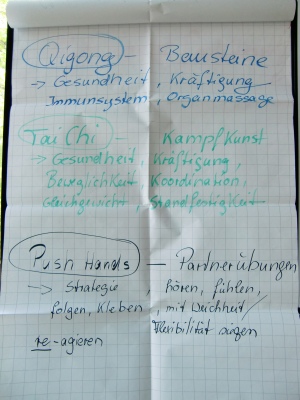 Qigong - Bausteine
-> Gesundheit, Kräftigung
Immunsystem, Organmassage
Tai Chi - Kampfkunst
-> Gesundheit, Kräftigung,
Beweglichkeit, Koordination,
Gleichgewicht, Standfestigkeit
Push Hands - Partnerübungen
-> Strategie, hören, fühlen,
folgen, Kleben, mit Weichheit/
Flexibilität siegen
re-agieren